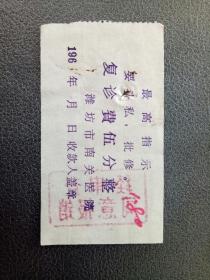 最高指示
要斗私，批修。
复诊費伍分整
潍坊市南关医院
196 年 月 日收款人盖章